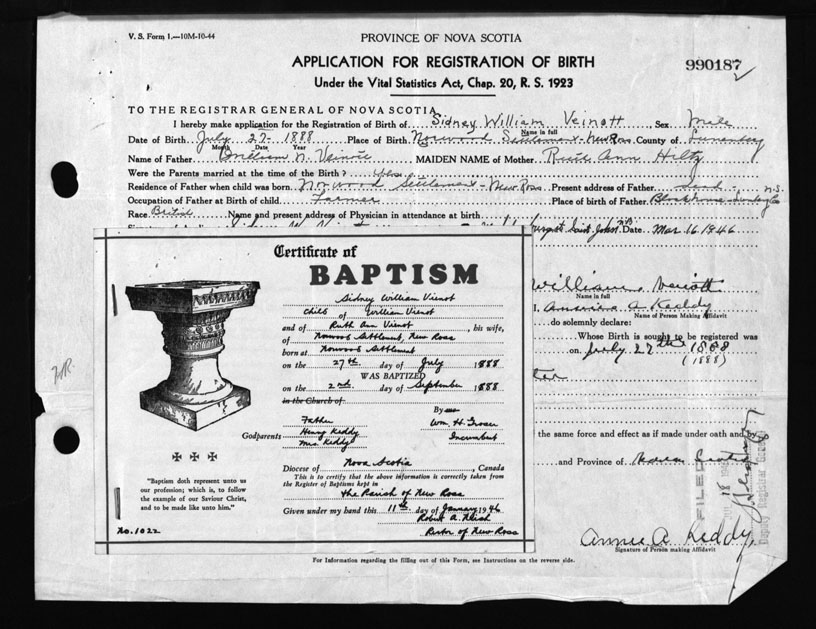 V. S. Form 1.—10M-10-44
PROVINCE OF NOVA SCOTIA
APPLICATION FOR REGISTRATION OF BIRTH
990187
Under the Vital Statistics Act, Chap. 20, R. S. 1923
TO THE REGISTRAR GENERAL OF NOVA SCOTIA
I hereby make application for the Registration of Birth of Sidney William Veinott Sex Male
Name in full
Date of Birth July 27 - 1888 Place of Birth Norwood Settlement - New Ross County of Lunenburg
Month Date Year
Name of Father William N. MAIDEN NAME of Mother Ruth Ann Hiltz
Were the Parents married at the time of the Birth?
Residence of Father when child was born Norwood Settlement - New Ross Present address of Father N.S.
Occupation of Father at Birth of child Farmer Place of birth of Father
Race British Name and present address of Physician in attendance at birth
Saint John N.B. Date Mar 16 1946
William Name in full
I, A Keddy
Name of Person Making Affidavit
do solemnly declare:
Whose Birth is sought to be registered was
on July 27th 1888
(1888)
the same force and effect as if made under oath and by
and Province of
FILED
18
Deputy Registrar General
Annie A Keddy
Signature of Person making Affidavit
For Information regarding the filling out of this Form, see Instructions on the reverse side.
Certificate of
BAPTISM
Sidney William Vienot
Child of William Vienot
and of Ruth Ann Vienot, his wife,
of Norwood Settlement, New Ross
born at Norwood Settlement
on the 27th day of July 1888
WAS BAPTIZED
on the 2nd day of September 1888
in the Church of
By
Father Wm. H. Groser
Godparents Henry Keddy Incumbent
Mrs. Keddy
Diocese of Nova Scotia, Canada
This is to certify that the above information is correctly taken
from the Register of Baptisms kept in
the Parish of New Ross
Given under my hand this 11th day of January 1946
Robert A.
Rector of New Ross
"Baptism doth represent unto us
our profession; which is, to follow
the example of our Saviour Christ,
and to be made like unto him."
No. 1022